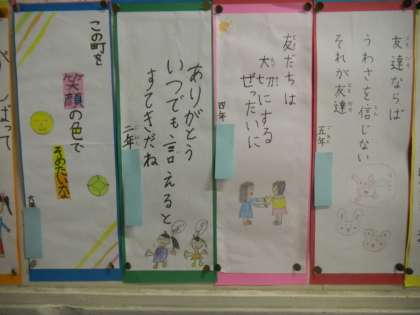 友達ならば
うわさを信じない
それが友達
五年
友だちは
大切にする
ぜったいに
四年
ありがとう
いつでも言えると
すてきだね
二年
この町を
笑顔の色で
そめたいな